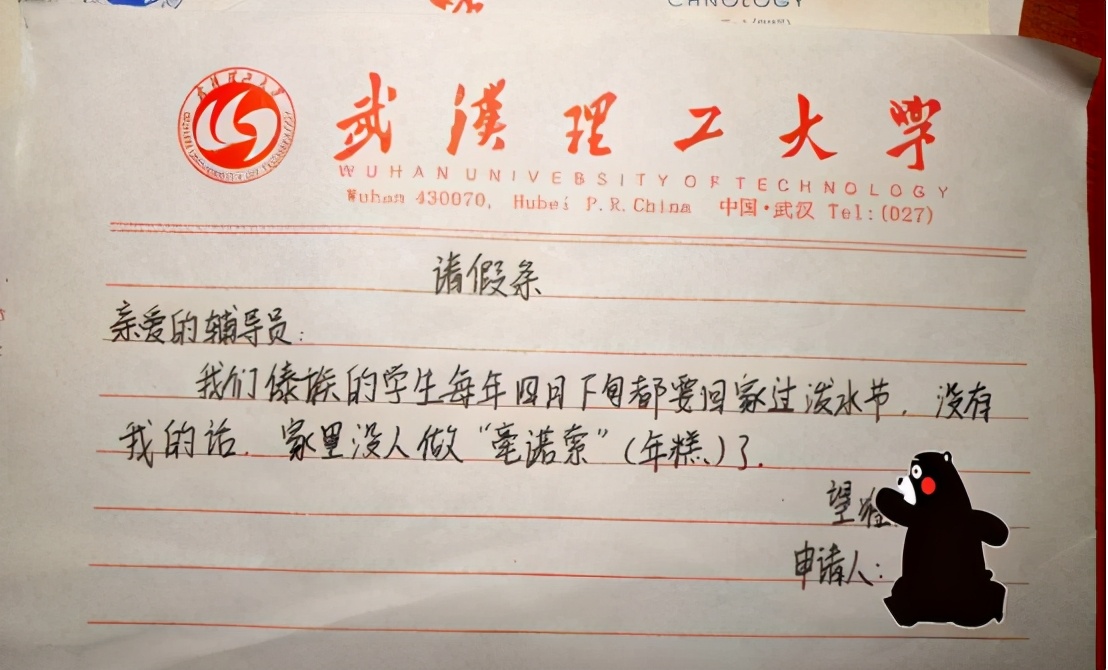 CHNOLOGY
武漢理工大学
WUHAN UNIVERSITY OF TECHNOLOGY
Wuhan 430070, Hubei P.R.China 中国·武汉 Tel:(027)
请假条
亲爱的辅导员：
我们傣族的学生每年四月下旬都要回家过泼水节，没有
我的话，家里没人做“毫诺索”（年糕）了。
望
申请人：